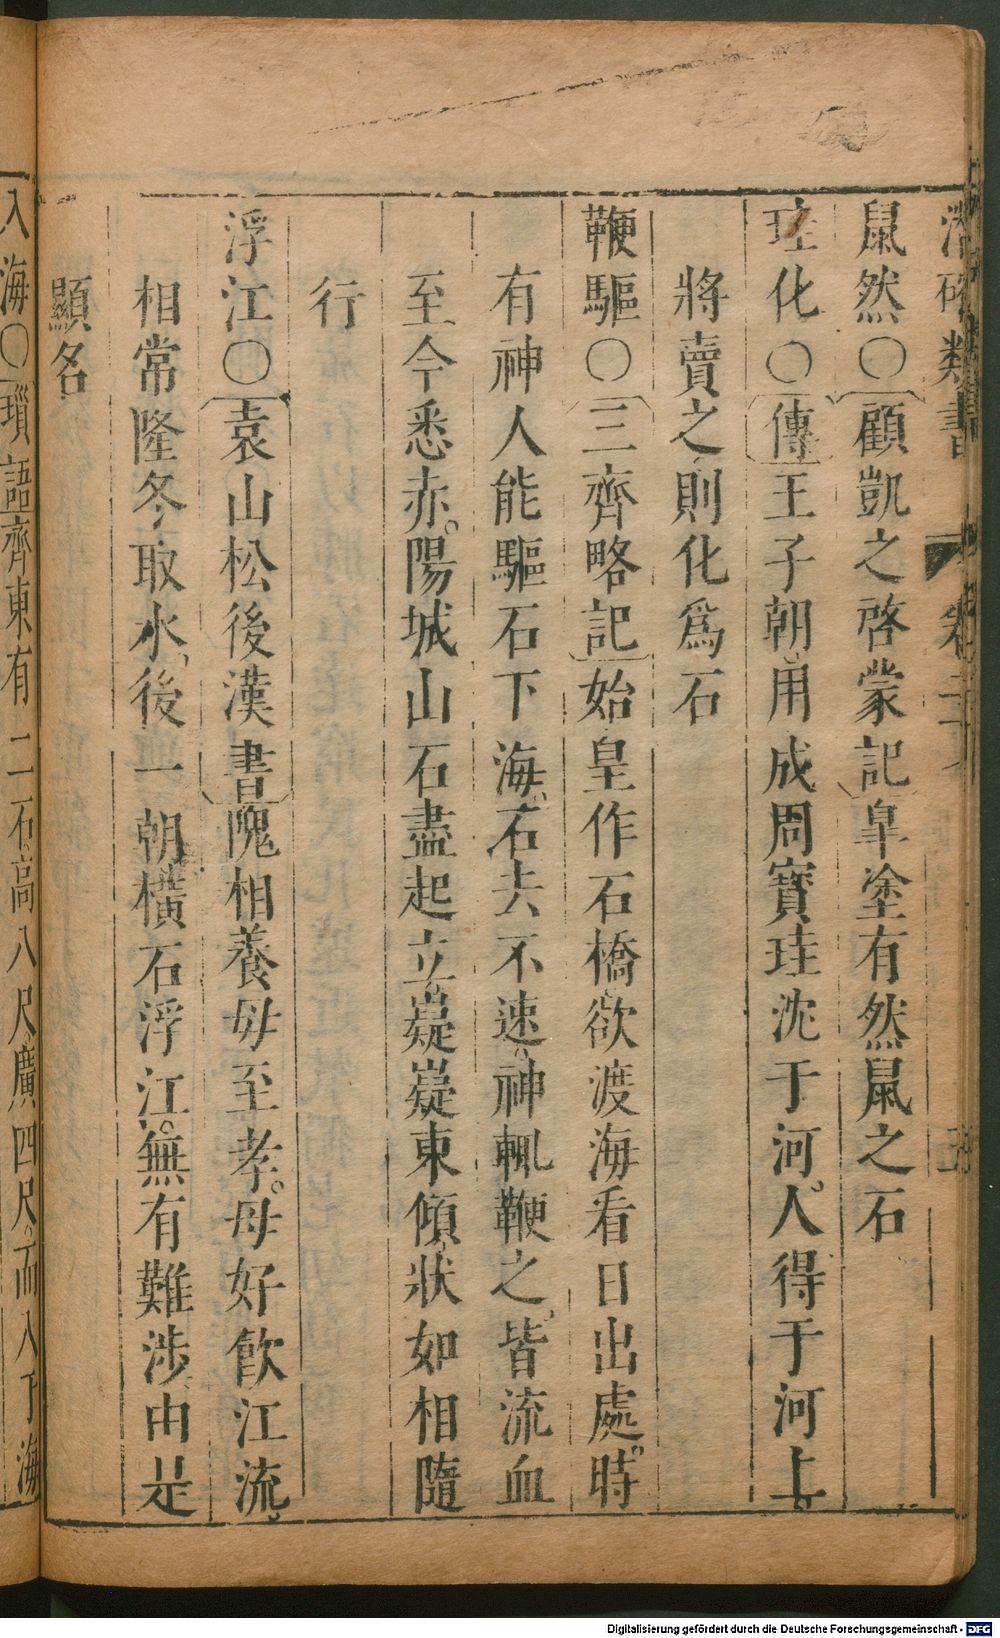 鼠然〇顧凱之啓蒙記皐塗有然鼠之石
珪化〇傳王子朝用成周寶珪沈于河人得于河上
將賣之則化爲石
鞭驅〇三齊略記始皇作石橋欲渡海看日出處時
有神人能驅石下海石去不速神輒鞭之皆流血
至今悉赤陽城山石盡起立嶷嶷東傾狀如相隨
行
浮江〇袁山松後漢書隗相養母至孝母好飮江流
相常隆冬取水後一朝橫石浮江無有難涉由是
顯名
入海〇瑣語齊東有二石高八尺廣四尺而入于海
Digitalisierung gefördert durch die Deutsche Forschungsgemeinschaft - DFG